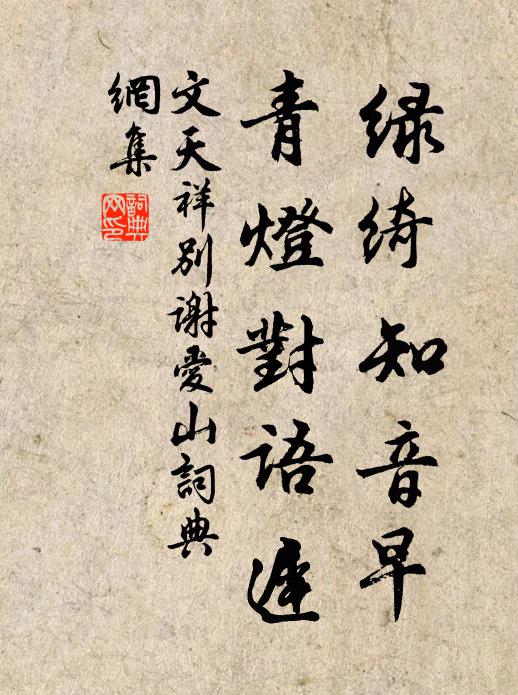 绿绮知音早
青燈對語遲
文天祥别謝愛山詞典
網集
詞典
网印